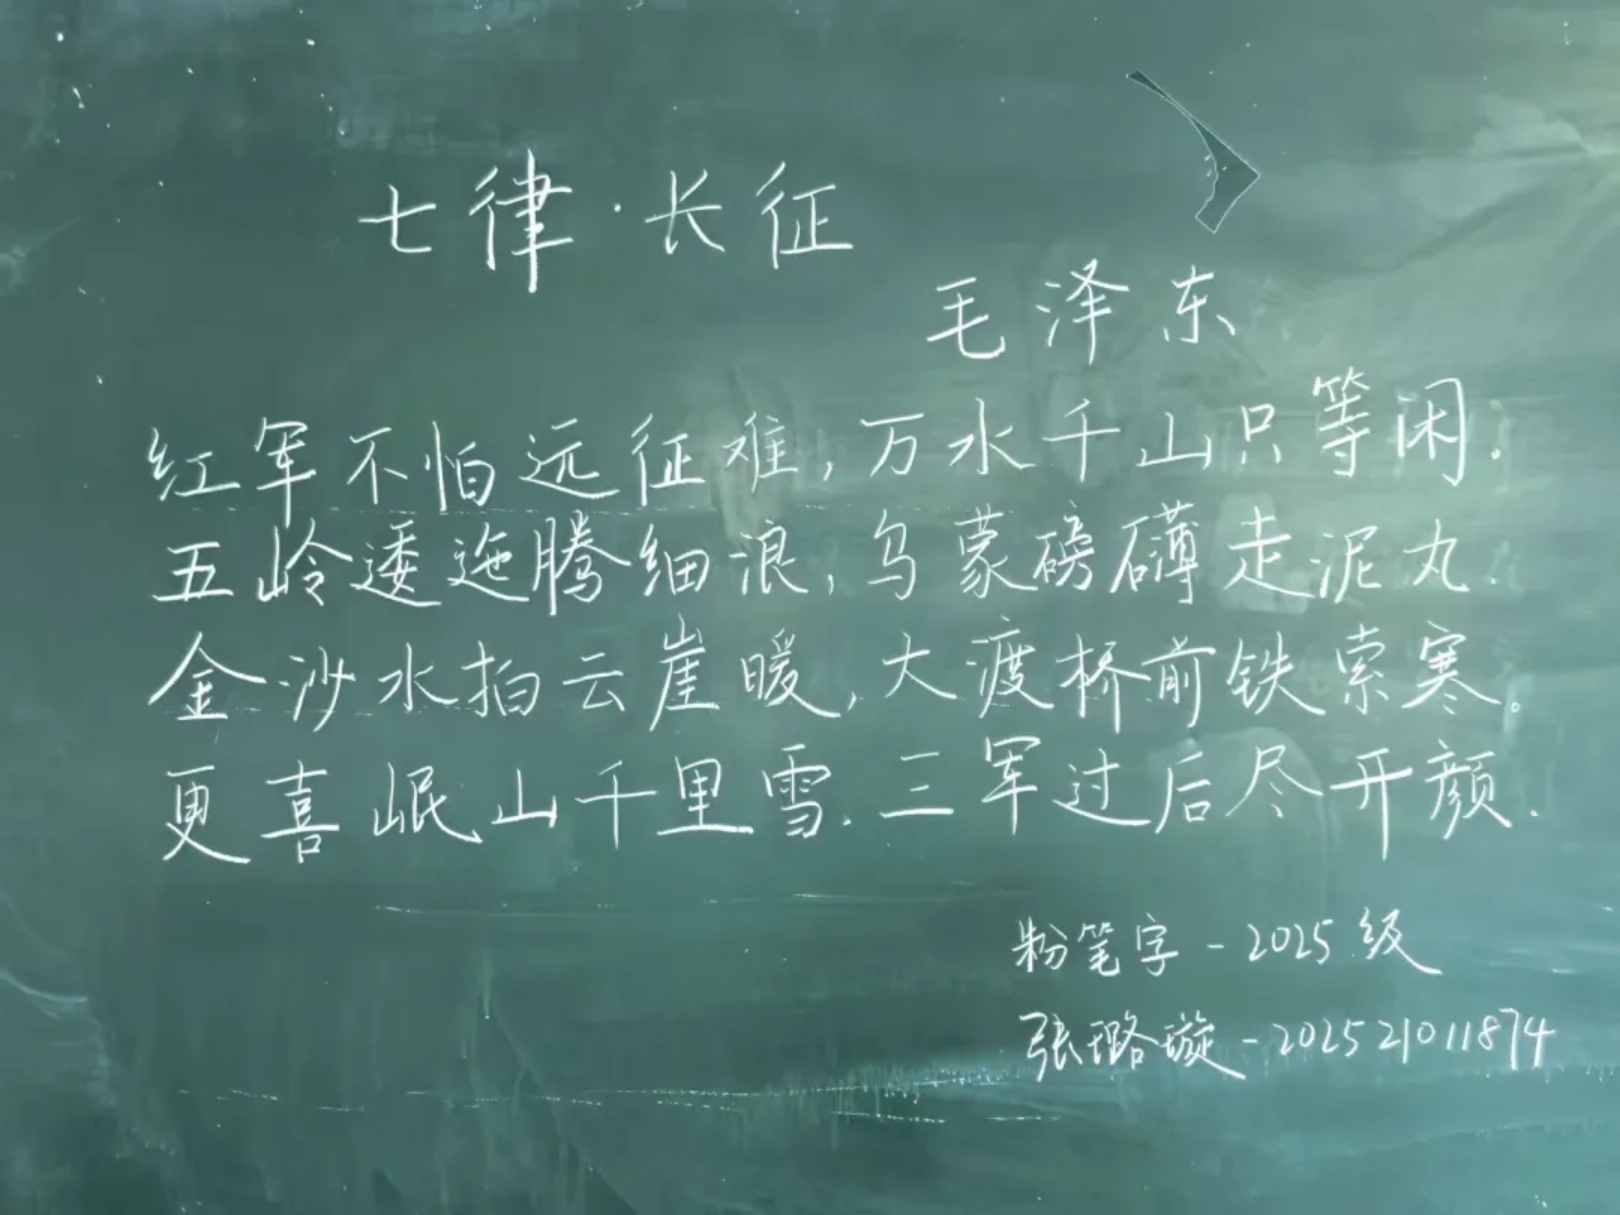 七律·长征
毛泽东
红军不怕远征难,万水千山只等闲.
五岭逶迤腾细浪,乌蒙磅礴走泥丸.
金沙水拍云崖暖,大渡桥前铁索寒。
更喜岷山千里雪.三军过后尽开颜.
粉笔字-2025级
张璐璇-202521011874